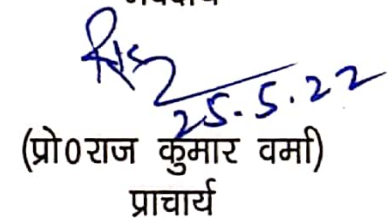 25.5.22
(प्रो0राज कुमार वर्मा)
प्राचार्य